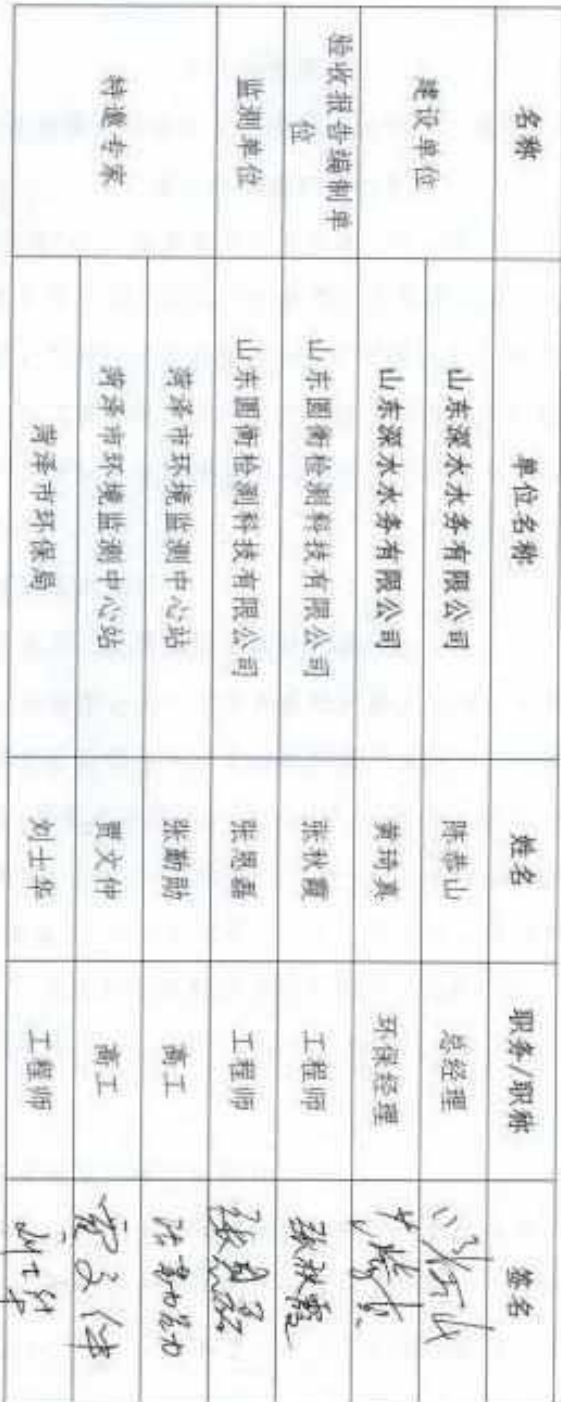 名称 单位名称 姓名 职务/职称 签名
建设单位 山东深水水务有限公司 陈恭山 总经理
山东深水水务有限公司 黄琦真 环保经理
验收报告编制单位 山东圆衡检测科技有限公司 张秋霞 工程师 张秋霞
监测单位 山东圆衡检测科技有限公司 张恩磊 工程师 张恩磊
特邀专家 菏泽市环境监测中心站 张勤勋 高工
菏泽市环境监测中心站 贾文仲 高工
菏泽市环保局 刘士华 工程师